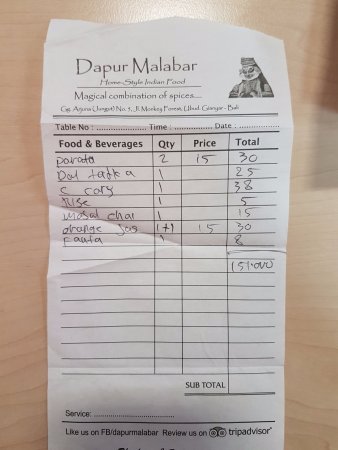 Dapur Malabar
Home-Style Indian Food
Magical combination of spices....
Gg. Arjuna (Jungut) No. 5, Jl Monkey Forest, Ubud. Gianyar - Bali
Table No : .................. Time : .................. Date : ..................
Food & Beverages Qty Price Total
parata 2 15 30
Dal tatka 1 25
c cary 1 38
rise 1 5
masal chai 1 15
orange jus 1+1 15 30
Fanta 1 8
151.000
SUB TOTAL
Service: ..............................
Like us on FB/dapurmalabar Review us on tripadvisor